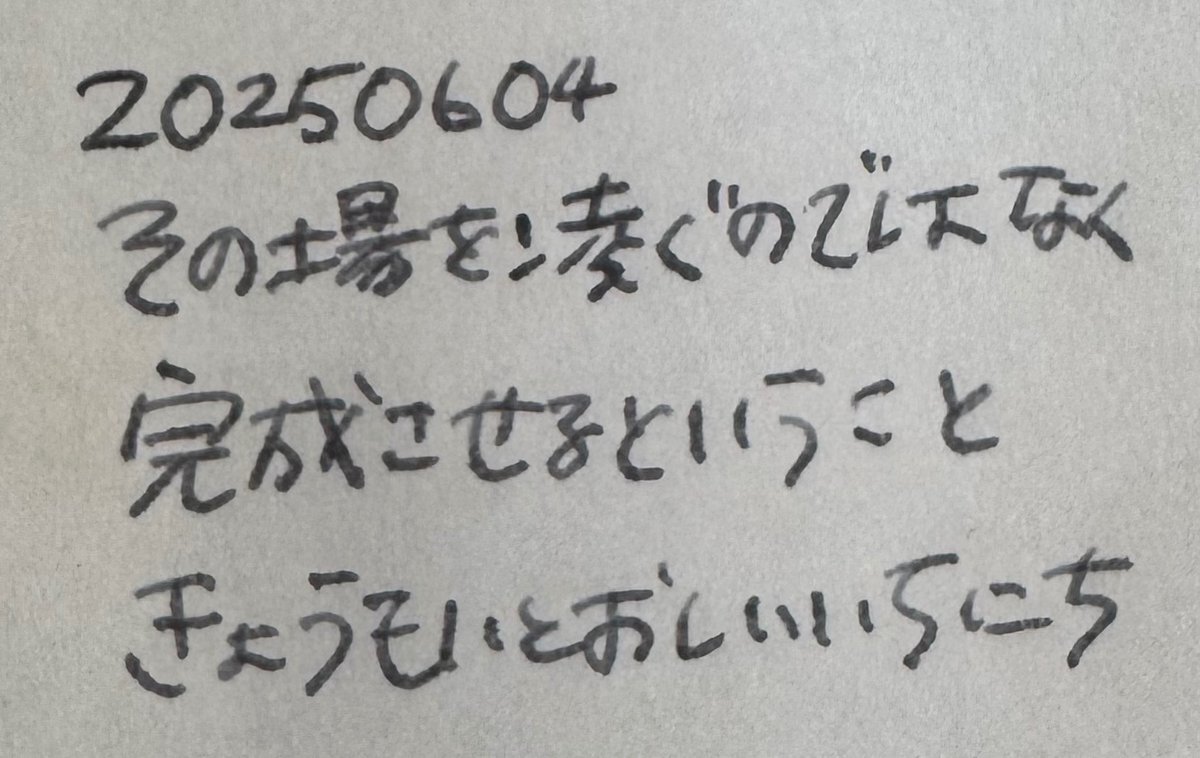 20250604
その場を凌ぐのではなく
完成させるということ
きょうもいとおしいいちにち